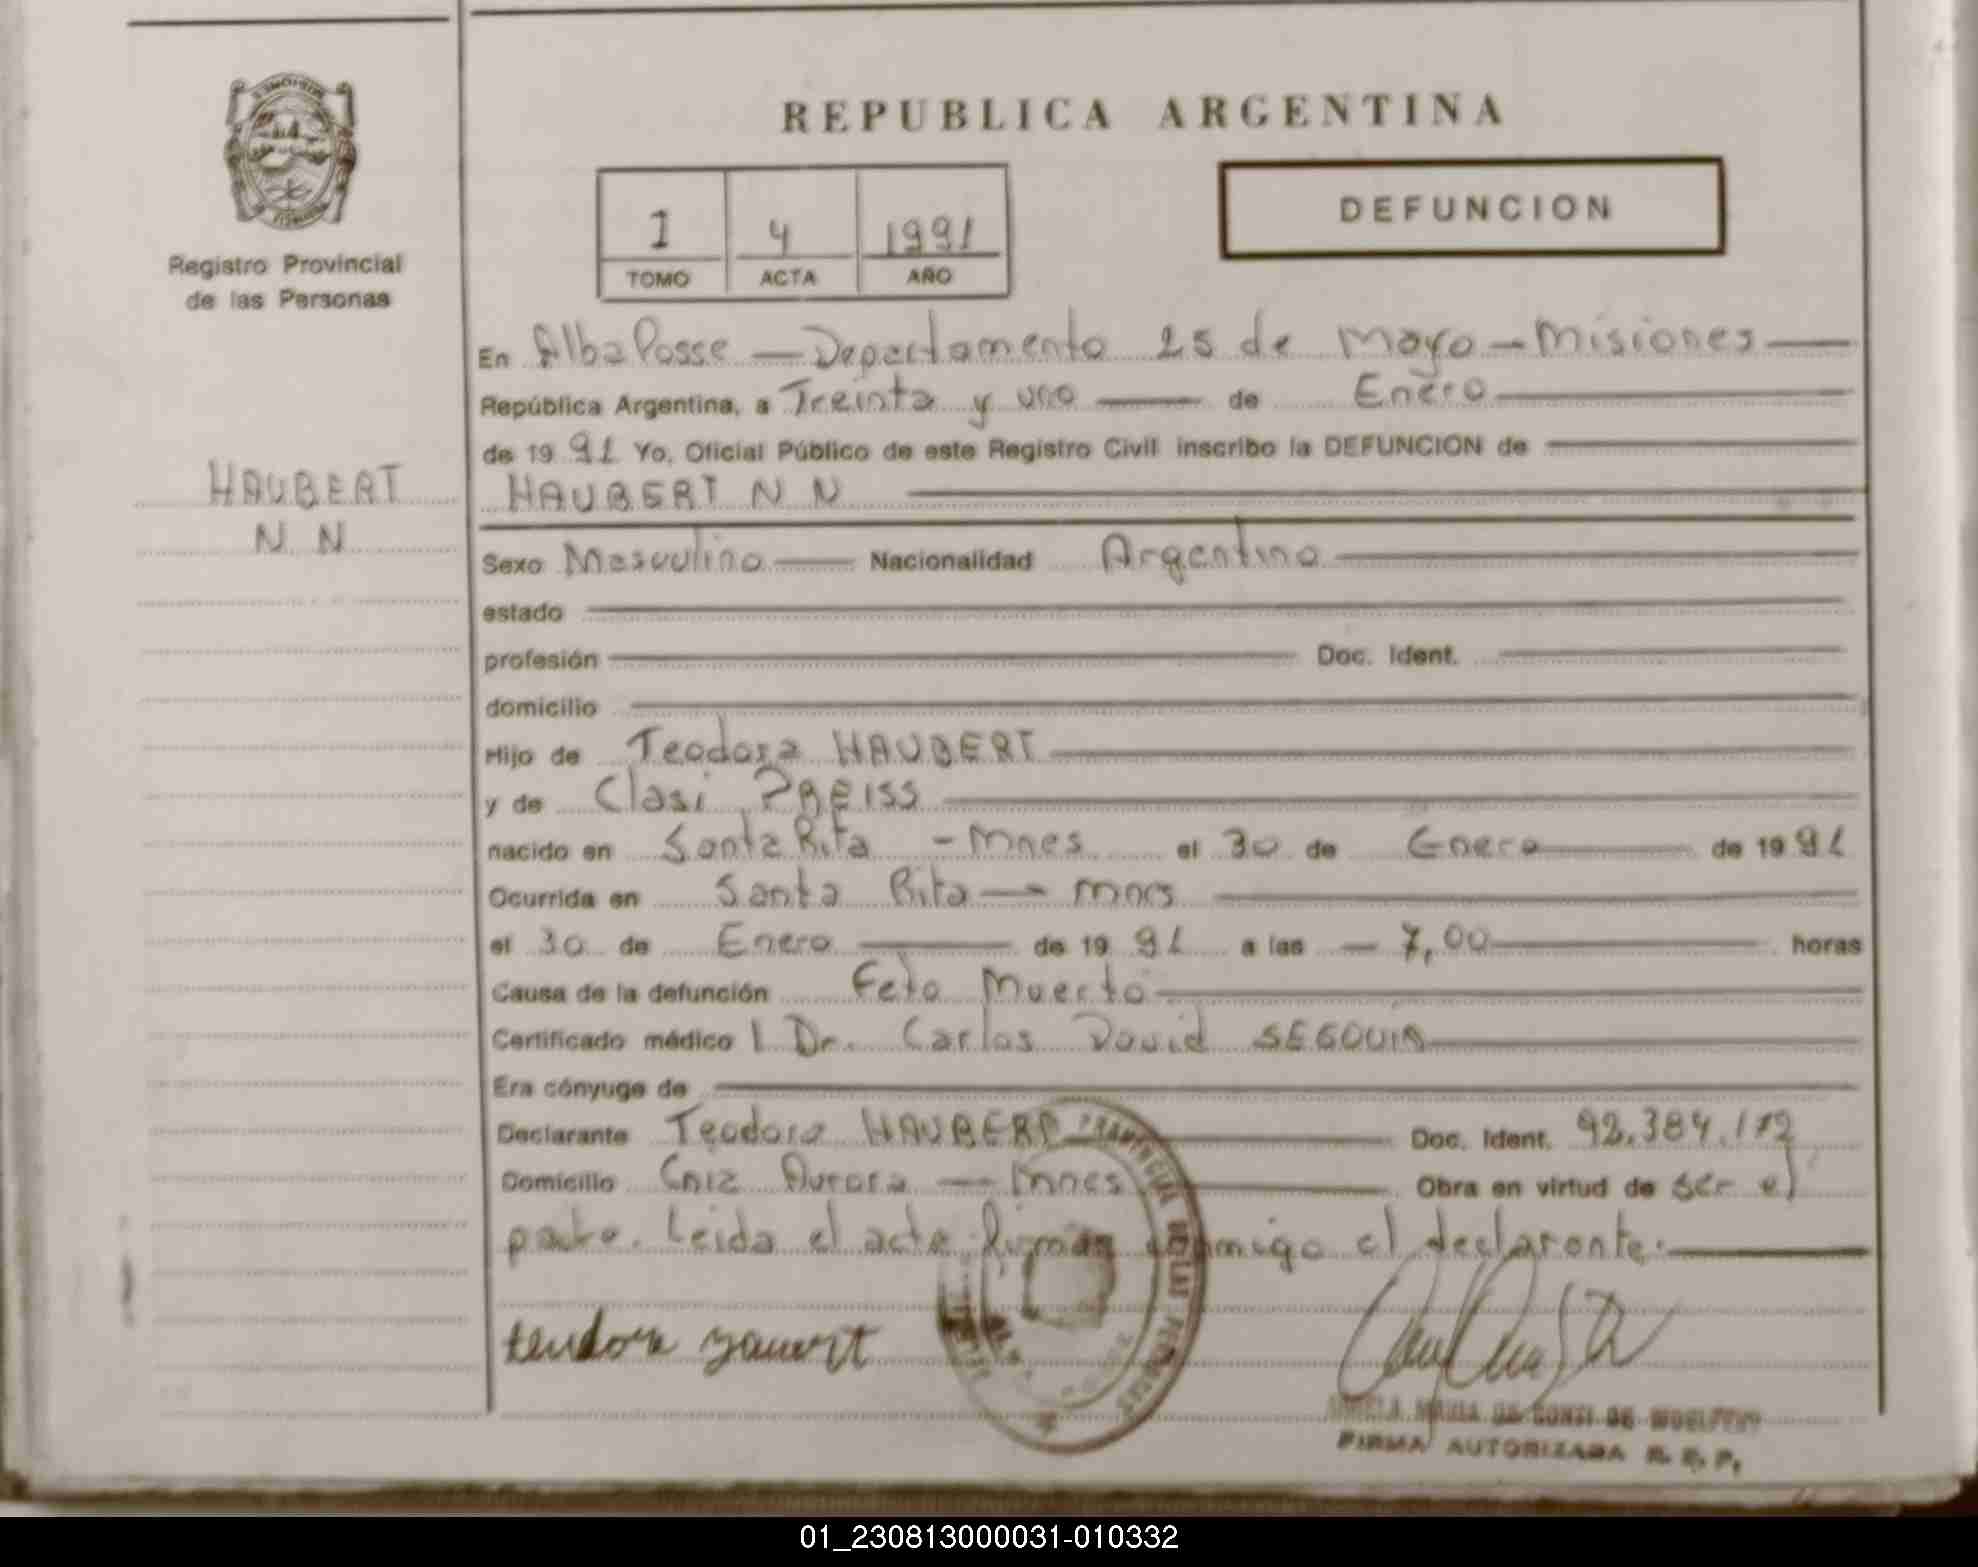 REPUBLICA ARGENTINA
Registro Provincial
de las Personas
1 4 1991
TOMO ACTA AÑO
DEFUNCION
En Alba Posse — Departamento 25 de Mayo — Misiones
República Argentina, a Treinta y uno de Enero
de 19 91 Yo, Oficial Público de este Registro Civil inscribo la DEFUNCION de
HAUBERT N N
HAUBERT
N N
Sexo Masculino Nacionalidad Argentino
estado
profesión Doc. Ident.
domicilio
Hijo de Teodora HAUBERT
y de Clasi PREISS
nacido en Santa Rita - Mnes el 30 de Enero de 19 91
Ocurrida en Santa Rita — Mnes
el 30 de Enero de 19 91 a las — 7,00 horas
Causa de la defunción Feto Muerto
Certificado médico Dr. Carlos David SEGOUIA
Era cónyuge de
Declarante Teodora HAUBERT Doc. Ident. 92.384.
Domicilio Aurora — Mnes Obra en virtud de ser el
padre. Leida el acta firma conmigo el declarante.
PROVINCIAL DE LAS PERSONAS
FIRMA AUTORIZADA R. P. P.
01_230813000031-010332